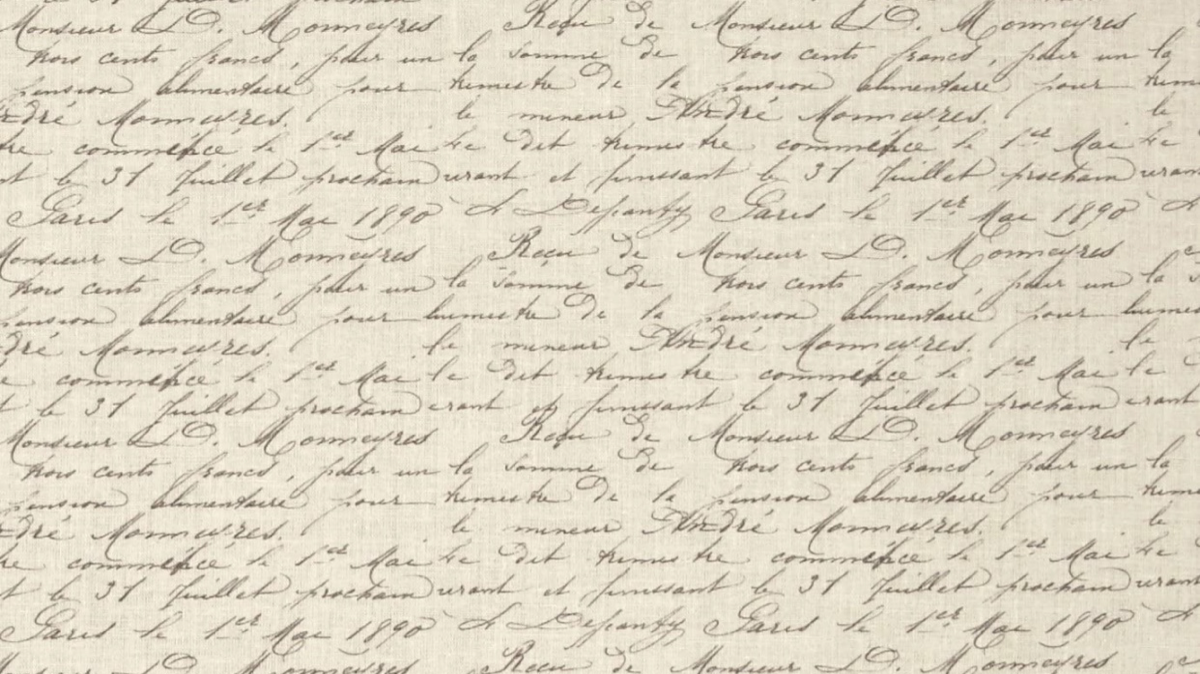 Monsieur D. Monneyres Reçu de Monsieur D. Monneyres
trois cents francs, pour un la somme de trois cents francs, pour un la
pension alimentaire pour trimestre de la pension alimentaire pour
André Monneyres. le mineur André Monneyres. le
commencé le 1er Mai le dit trimestre commencé le 1er Mai le
le 31 Juillet prochain et finissant le 31 Juillet prochain
Paris le 1er Mai 1890 Paris le 1er Mai 1890
Monsieur D. Monneyres Reçu de Monsieur D. Monneyres
trois cents francs, pour un la somme de trois cents francs, pour un la
pension alimentaire pour trimestre de la pension alimentaire pour
Monneyres. le mineur André Monneyres. le
commencé le 1er Mai le dit trimestre commencé le 1er Mai le
le 31 Juillet prochain et finissant le 31 Juillet prochain
Monsieur D. Monneyres Reçu de Monsieur D. Monneyres
trois cents francs, pour un la somme de trois cents francs, pour un la
pension alimentaire pour trimestre de la pension alimentaire pour
André Monneyres. le mineur André Monneyres. le
commencé le 1er Mai le dit trimestre commencé le 1er Mai le
le 31 Juillet prochain et finissant le 31 Juillet prochain
Paris le 1er Mai 1890 Paris le 1er Mai 1890
Reçu de Monsieur D. Monneyres